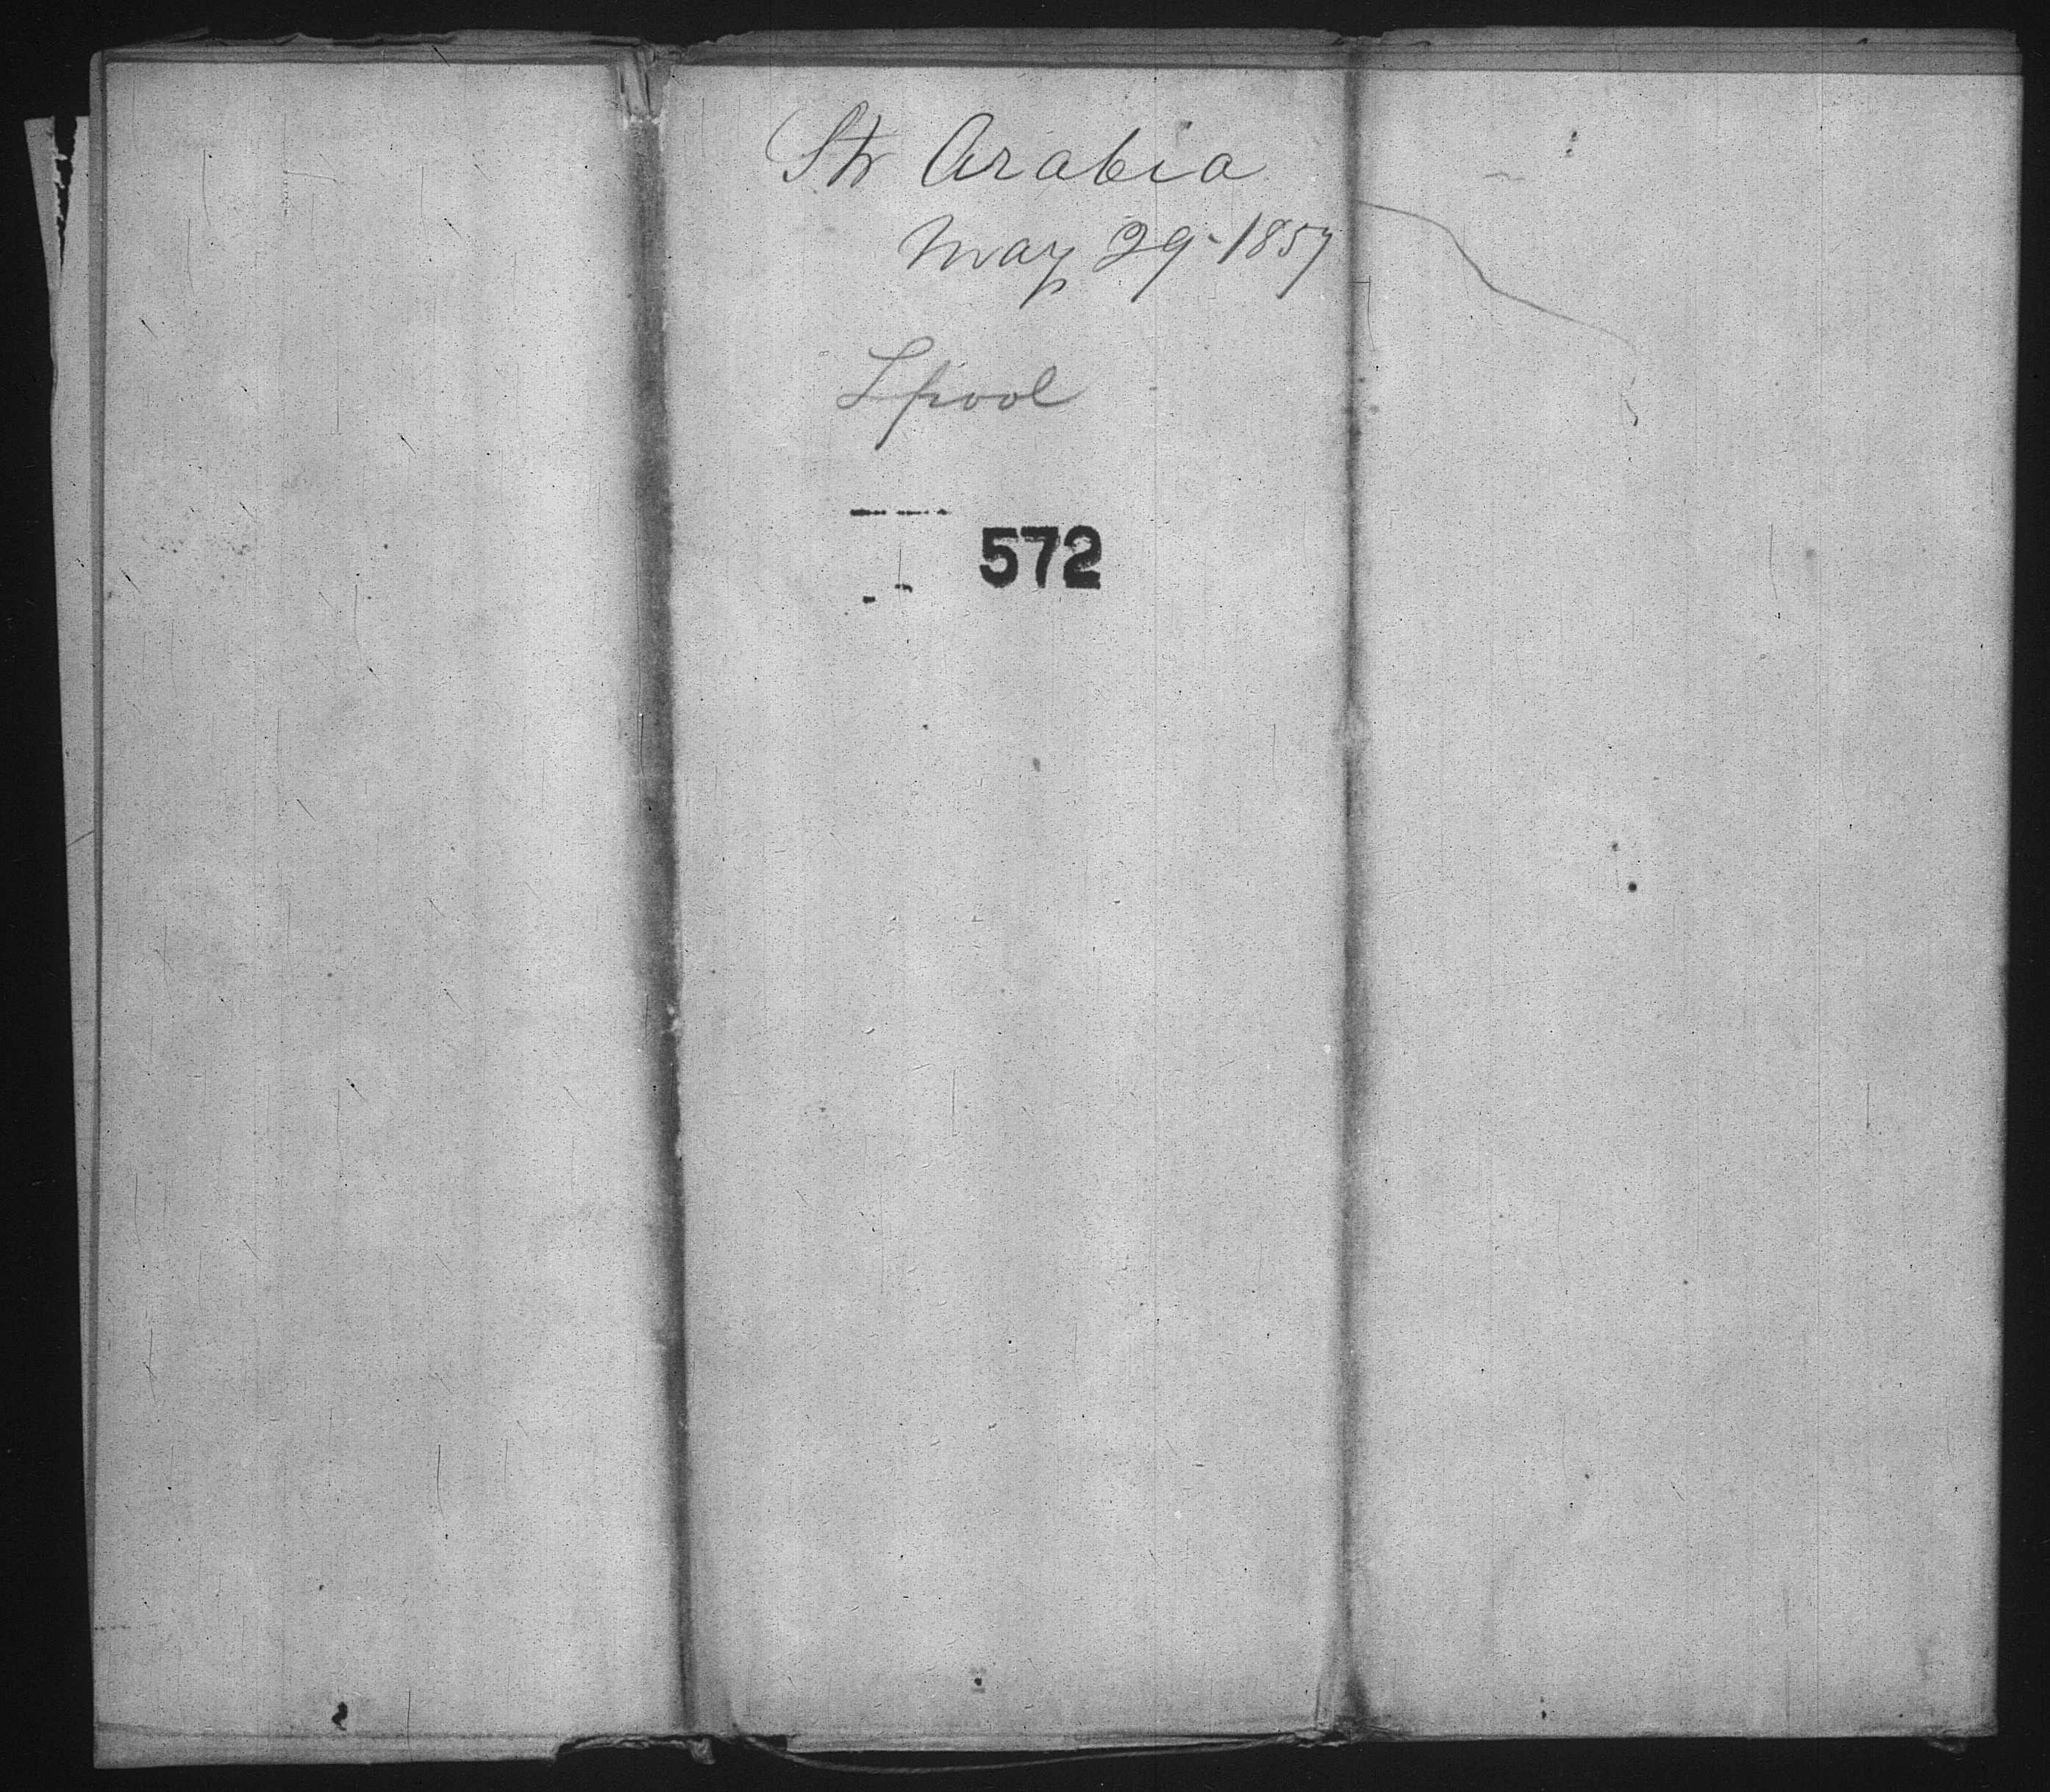 Str Arabia
May 29-1857
Lpool
572